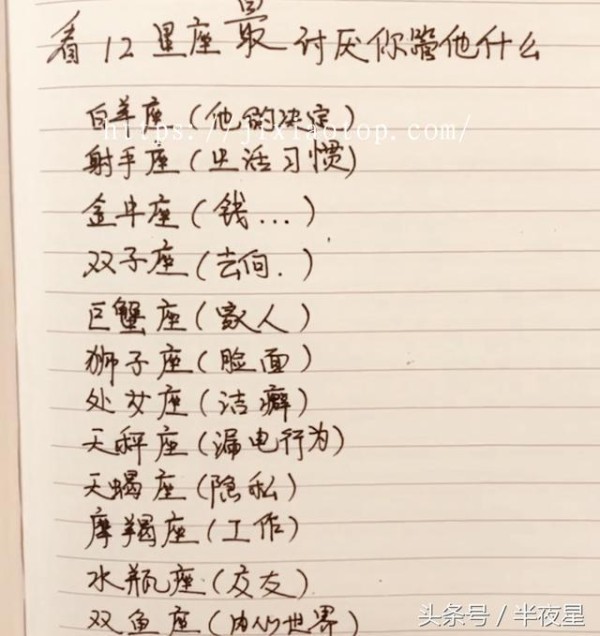 看12星座最讨厌你管他什么
白羊座(他的决定)
https://jixiaotop.com/
射手座(生活习惯)
金牛座(钱...)
双子座(去向.)
巨蟹座(家人)
狮子座(脸面)
处女座(洁癖)
天秤座(漏电行为)
天蝎座(隐私)
摩羯座(工作)
水瓶座(交友)
双鱼座(内心世界)
头条号/半夜星